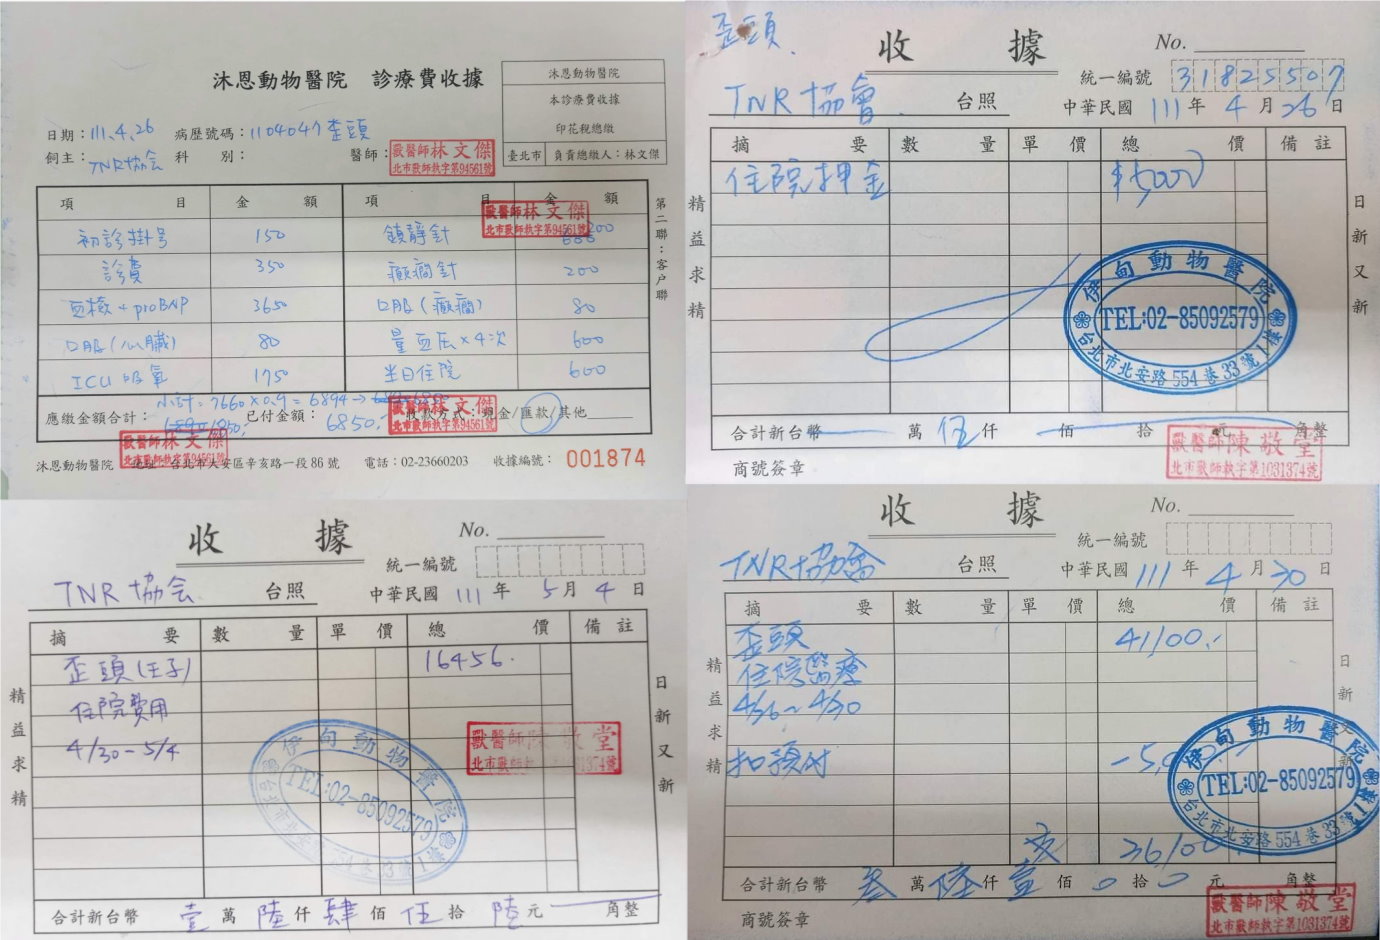 沐恩動物醫院 診療費收據
沐恩動物醫院
本診療費收據
印花稅總繳
臺北市 負責總繳人：林文傑
日期：111.4.26 病歷號碼：1104047 歪頭
飼主：TNR協会 科 別： 醫師：
獸醫師林文傑
北市獸師執字第94561號
項 目 金 額 項 目 金 額
獸醫師林文傑
北市獸師執字第94561號
初診掛号 150 鎮靜針 200
診費 350 癲癇針 200
血檢+proBNP 3650 口服(癲癇) 80
口服(心臟) 80 量血压×4次 600
ICU吸氧 1750 半日住院 600
小計=7660×0.9=6894→
應繳金額合計： 已付金額：6850. 收款方式：現金/匯款/其他
獸醫師林文傑
北市獸師執字第94561號
獸醫師林文傑
北市獸師執字第94561號
沐恩動物醫院 地址 台北市大安區辛亥路一段86號 電話：02-23660203 收據編號：001874
第二聯：客戶聯
歪頭.
收 據
No.
統一編號 31825507
TNR協會 台照 中華民國 111 年 4 月 26 日
摘 要 數 量 單 價 總 價 備 註
住院押金 $5,000
精益求精
日新又新
伊甸動物醫院
TEL:02-85092579
台北市北安路554巷33號1樓
合計新台幣 萬 伍 仟 佰 拾 元 角整
獸醫師陳敬堂
北市獸師執字第1031374號
商號簽章
收 據
No.
統一編號
TNR協会 台照 中華民國 111 年 5 月 4 日
摘 要 數 量 單 價 總 價 備 註
歪頭(王子) 16456.
住院費用
4/30-5/4
精益求精
日新又新
獸醫師陳敬堂
北市獸師執字第1031374號
伊甸動物醫院
TEL:02-85092579
台北市北安路554巷33號1樓
合計新台幣 壹 萬 陸 仟 肆 佰 伍 拾 陸 元 角整
收 據
No.
統一編號
TNR協會 台照 中華民國 111 年 4 月 30 日
摘 要 數 量 單 價 總 價 備 註
歪頭 41100.-
住院醫療
4/26~4/30
扣預付 -5,000
精益求精
日新又新
伊甸動物醫院
TEL:02-85092579
台北市北安路554巷33號1樓
36100
合計新台幣 叁 萬 陸 仟 壹 佰 0 拾 0 元 角整
獸醫師陳敬堂
北市獸師執字第1031374號
商號簽章